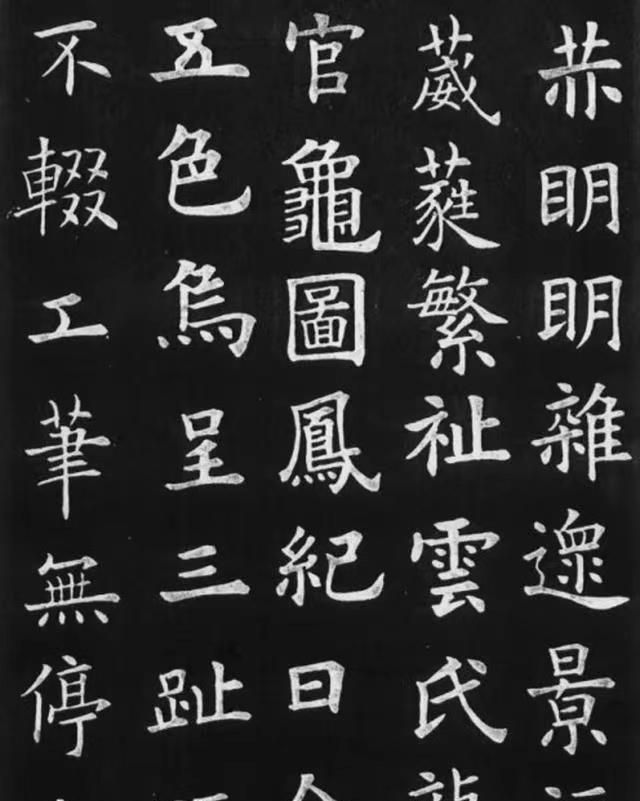 恭明明雜遝景
葳蕤繁祉雲氏龍
官龜圖鳳紀日含
五色烏呈三趾
不輟工筆無停